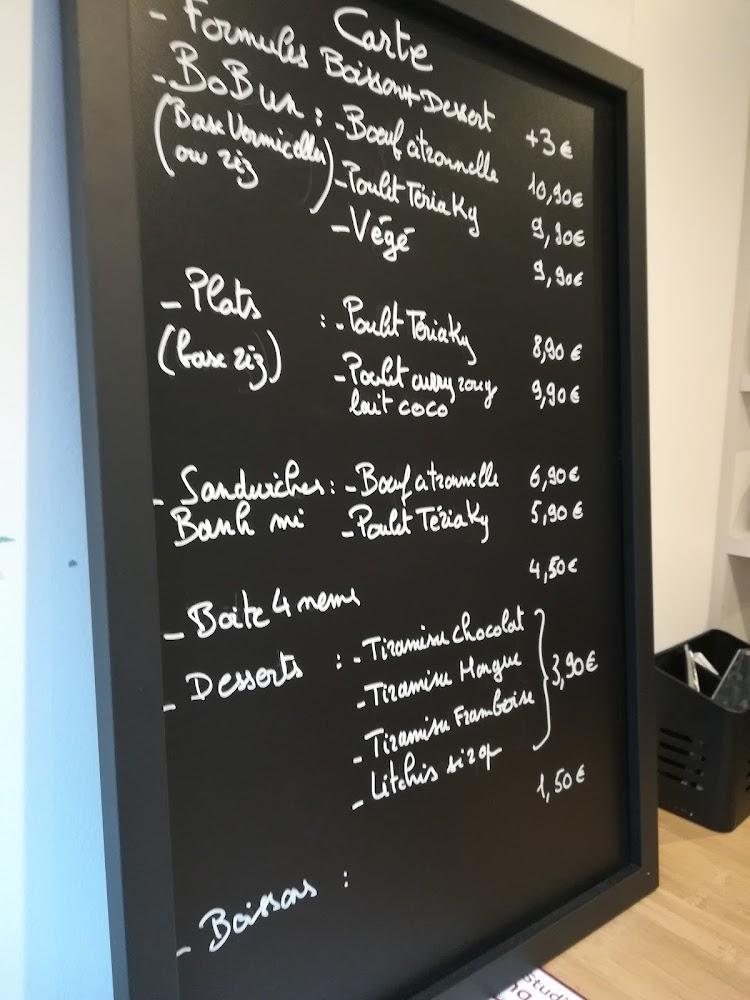 Carte
- Formules Boisson + Dessert +3€
- BoBun : - Boeuf citronnelle 10,90€
(Base Vermicelles - Poulet TériaKy 9,90€
ou riz) - Végé 9,90€
- Plats : - Poulet TériaKy 8,90€
(base riz) - Poulet curry rouge 9,90€
lait coco
- Sandwiches : - Boeuf citronnelle 6,90€
Banh mi - Poulet TériaKy 5,90€
- Boite 4 nems 4,50€
- Desserts : - Tiramisu chocolat
- Tiramisu Mangue 3,90€
- Tiramisu Framboise
- Litchis sirop 1,50€
- Boissons :